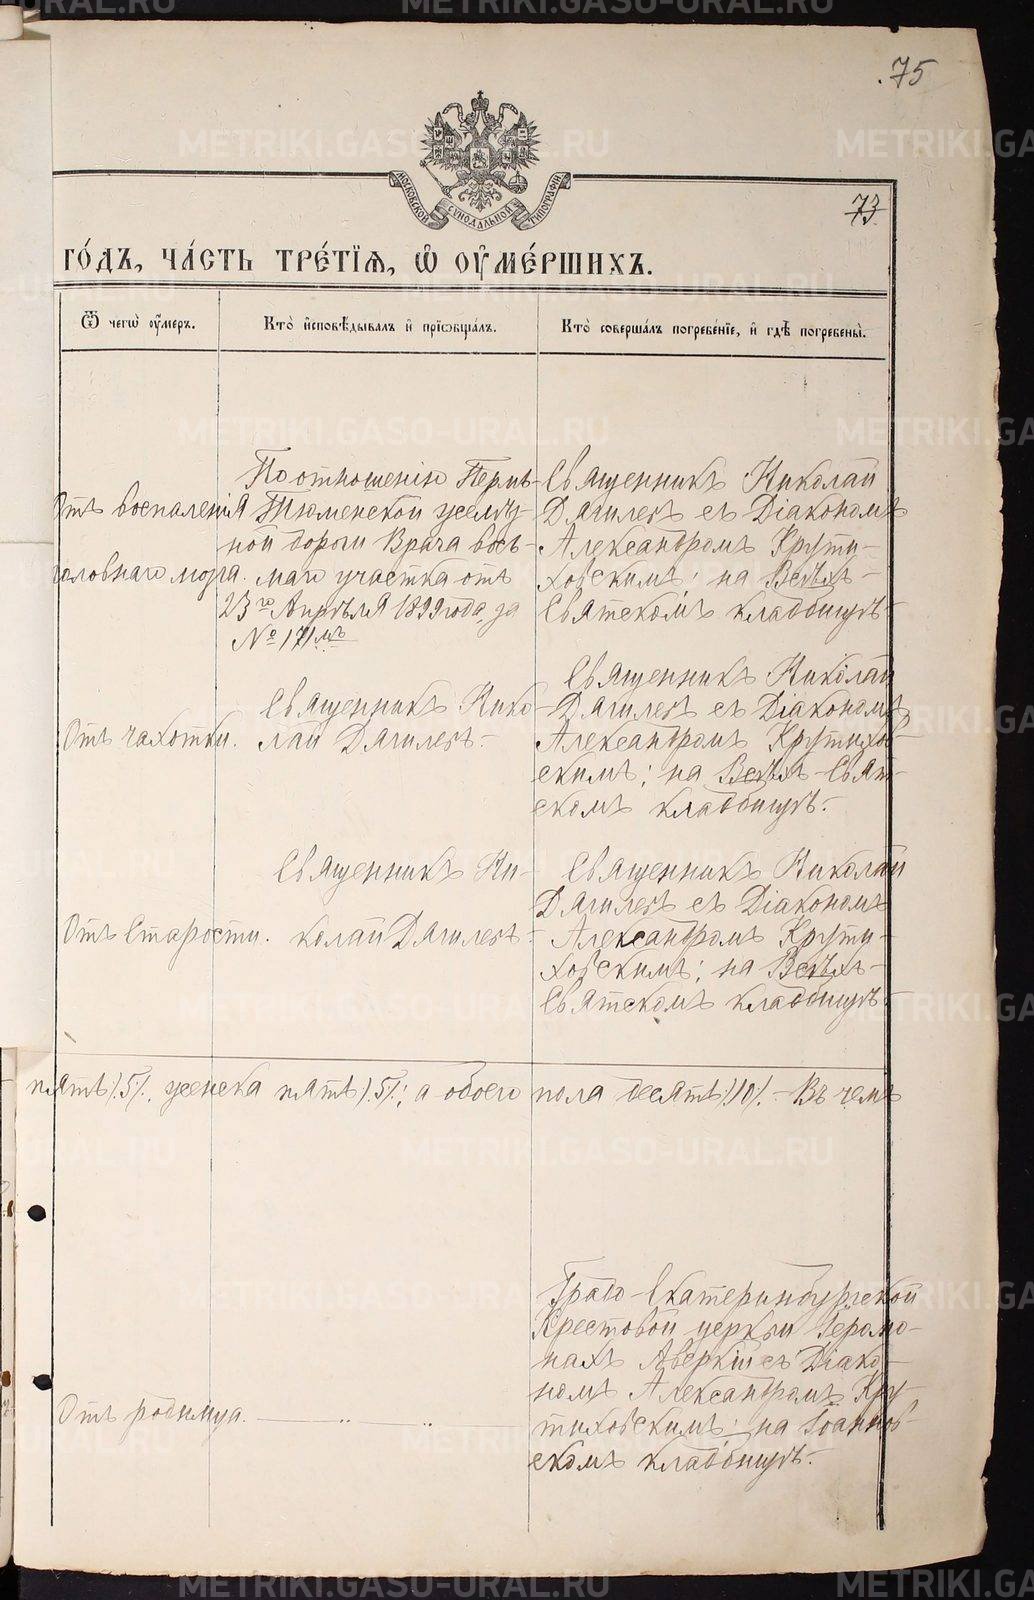 METRIKI.GASO-URAL.RU
75
МОСКОВСКОЙ СѴНОДАЛЬНОЙ ТИПОГРАФІИ
73
ГО́ДЪ, ЧА́СТЬ ТРЕ́ТІѦ, Ѽ ОУ҆МЕ́РШИХЪ.
Ѿ чегѡ̀ оу҆́меръ.
Кто̀ и҆сповѣ́дывалъ и҆ прїѡбща́лъ.
Кто̀ соверша́лъ погребе́нїе, и҆ гдѣ̀ погребены̀.
Отъ воспаленія
головнаго мозга.
По отношенію Пермь-
Тюменской желѣз-
ной дороги Врача вось-
маго участка отъ
23го Апрѣля 1899 года за
№ 171мъ
Священникъ Николай
Дягилевъ съ Діакономъ
Александромъ Крути-
ховскимъ; на Всѣхъ-
Святскомъ кладбищѣ.-
Отъ чахотки.
Священникъ Нико-
лай Дягилевъ.-
Священникъ Николай
Дягилевъ съ Діакономъ
Александромъ Крутихов-
скимъ; на Всѣхъ-Свят-
скомъ кладбищѣ.-
Отъ Старости.
Священникъ Ни-
колай Дягилевъ.-
Священникъ Николай
Дягилевъ съ Діакономъ
Александромъ Крути-
ховскимъ; на Всѣхъ-
Святскомъ кладбищѣ.-
пять /.5./, женска пять /.5./; а обоего пола десять /.10./.- Въ чемъ
Отъ родимца.
Градо-Екатеринбургской
Крестовой церкви Іеромо-
нахъ Аверкій съ Діако-
номъ Александромъ Кру-
тиховскимъ; на Іоаннов-
скомъ кладбищѣ.-